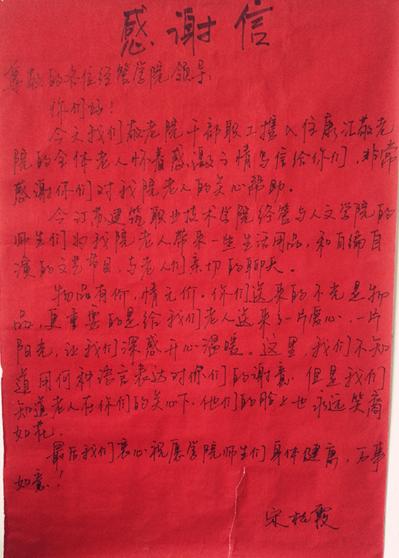 感谢信
尊敬的各位经管学院领导:
你们好!
今天我们敬老院干部职工携入住康汇敬老
院的全体老人怀着感激之情写信给你们,非常
感谢你们对我院老人的关心帮助。
今江苏建筑职业技术学院经管与人文学院的
师生们为我院老人带来一些生活用品,和自编自
演的文艺节目,与老人们亲切的聊天。
物品有价,情无价。你们送来的不光是物
品,更重要的是给我们老人送来了一片爱心,一片
阳光,让我们深感开心温暖。这里,我们不知
道用何种语言表达对你们的谢意,但是我们
知道老人在你们的关心下,他们的脸上也永远笑容
如花。
最后我们衷心祝愿学院师生们身体健康,万事
如意!
宋桂霞